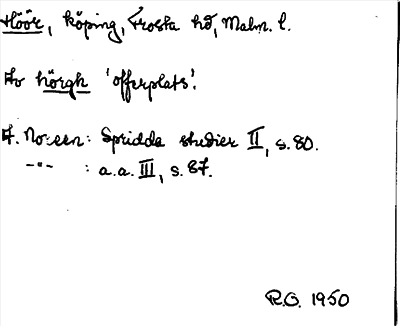 Höör, köping, Frosta hd, Malm. l.
Av hörgh 'offerplats'.
A. Noreen: Spridda studier II, s. 80.
-"- : a.a. III, s. 87.
R.O. 1950